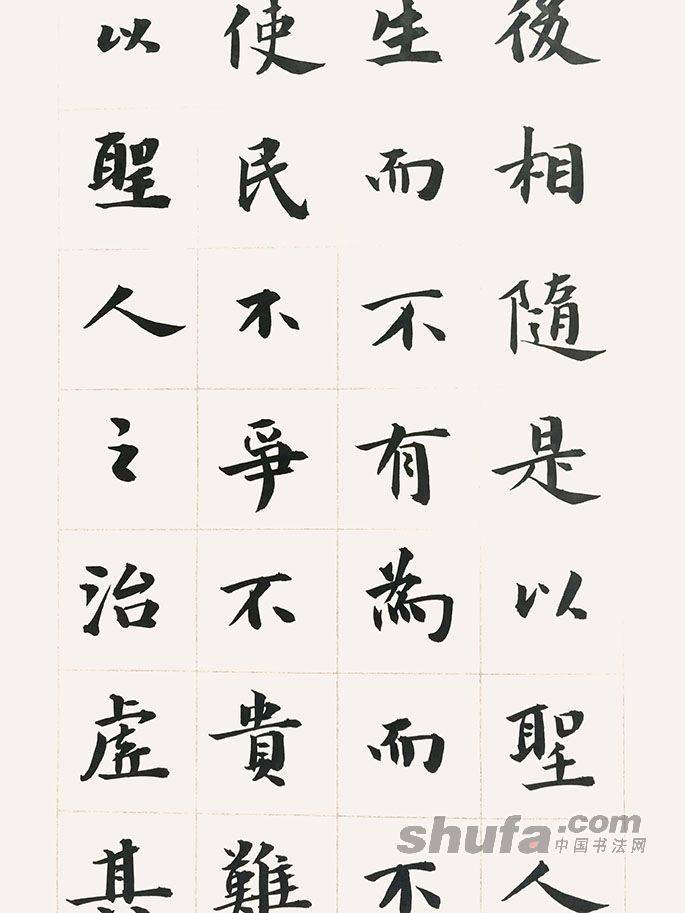 後相隨是以聖人
生而不有為而不
使民不爭不貴難
以聖人之治虛其
shufa.com
中国书法网